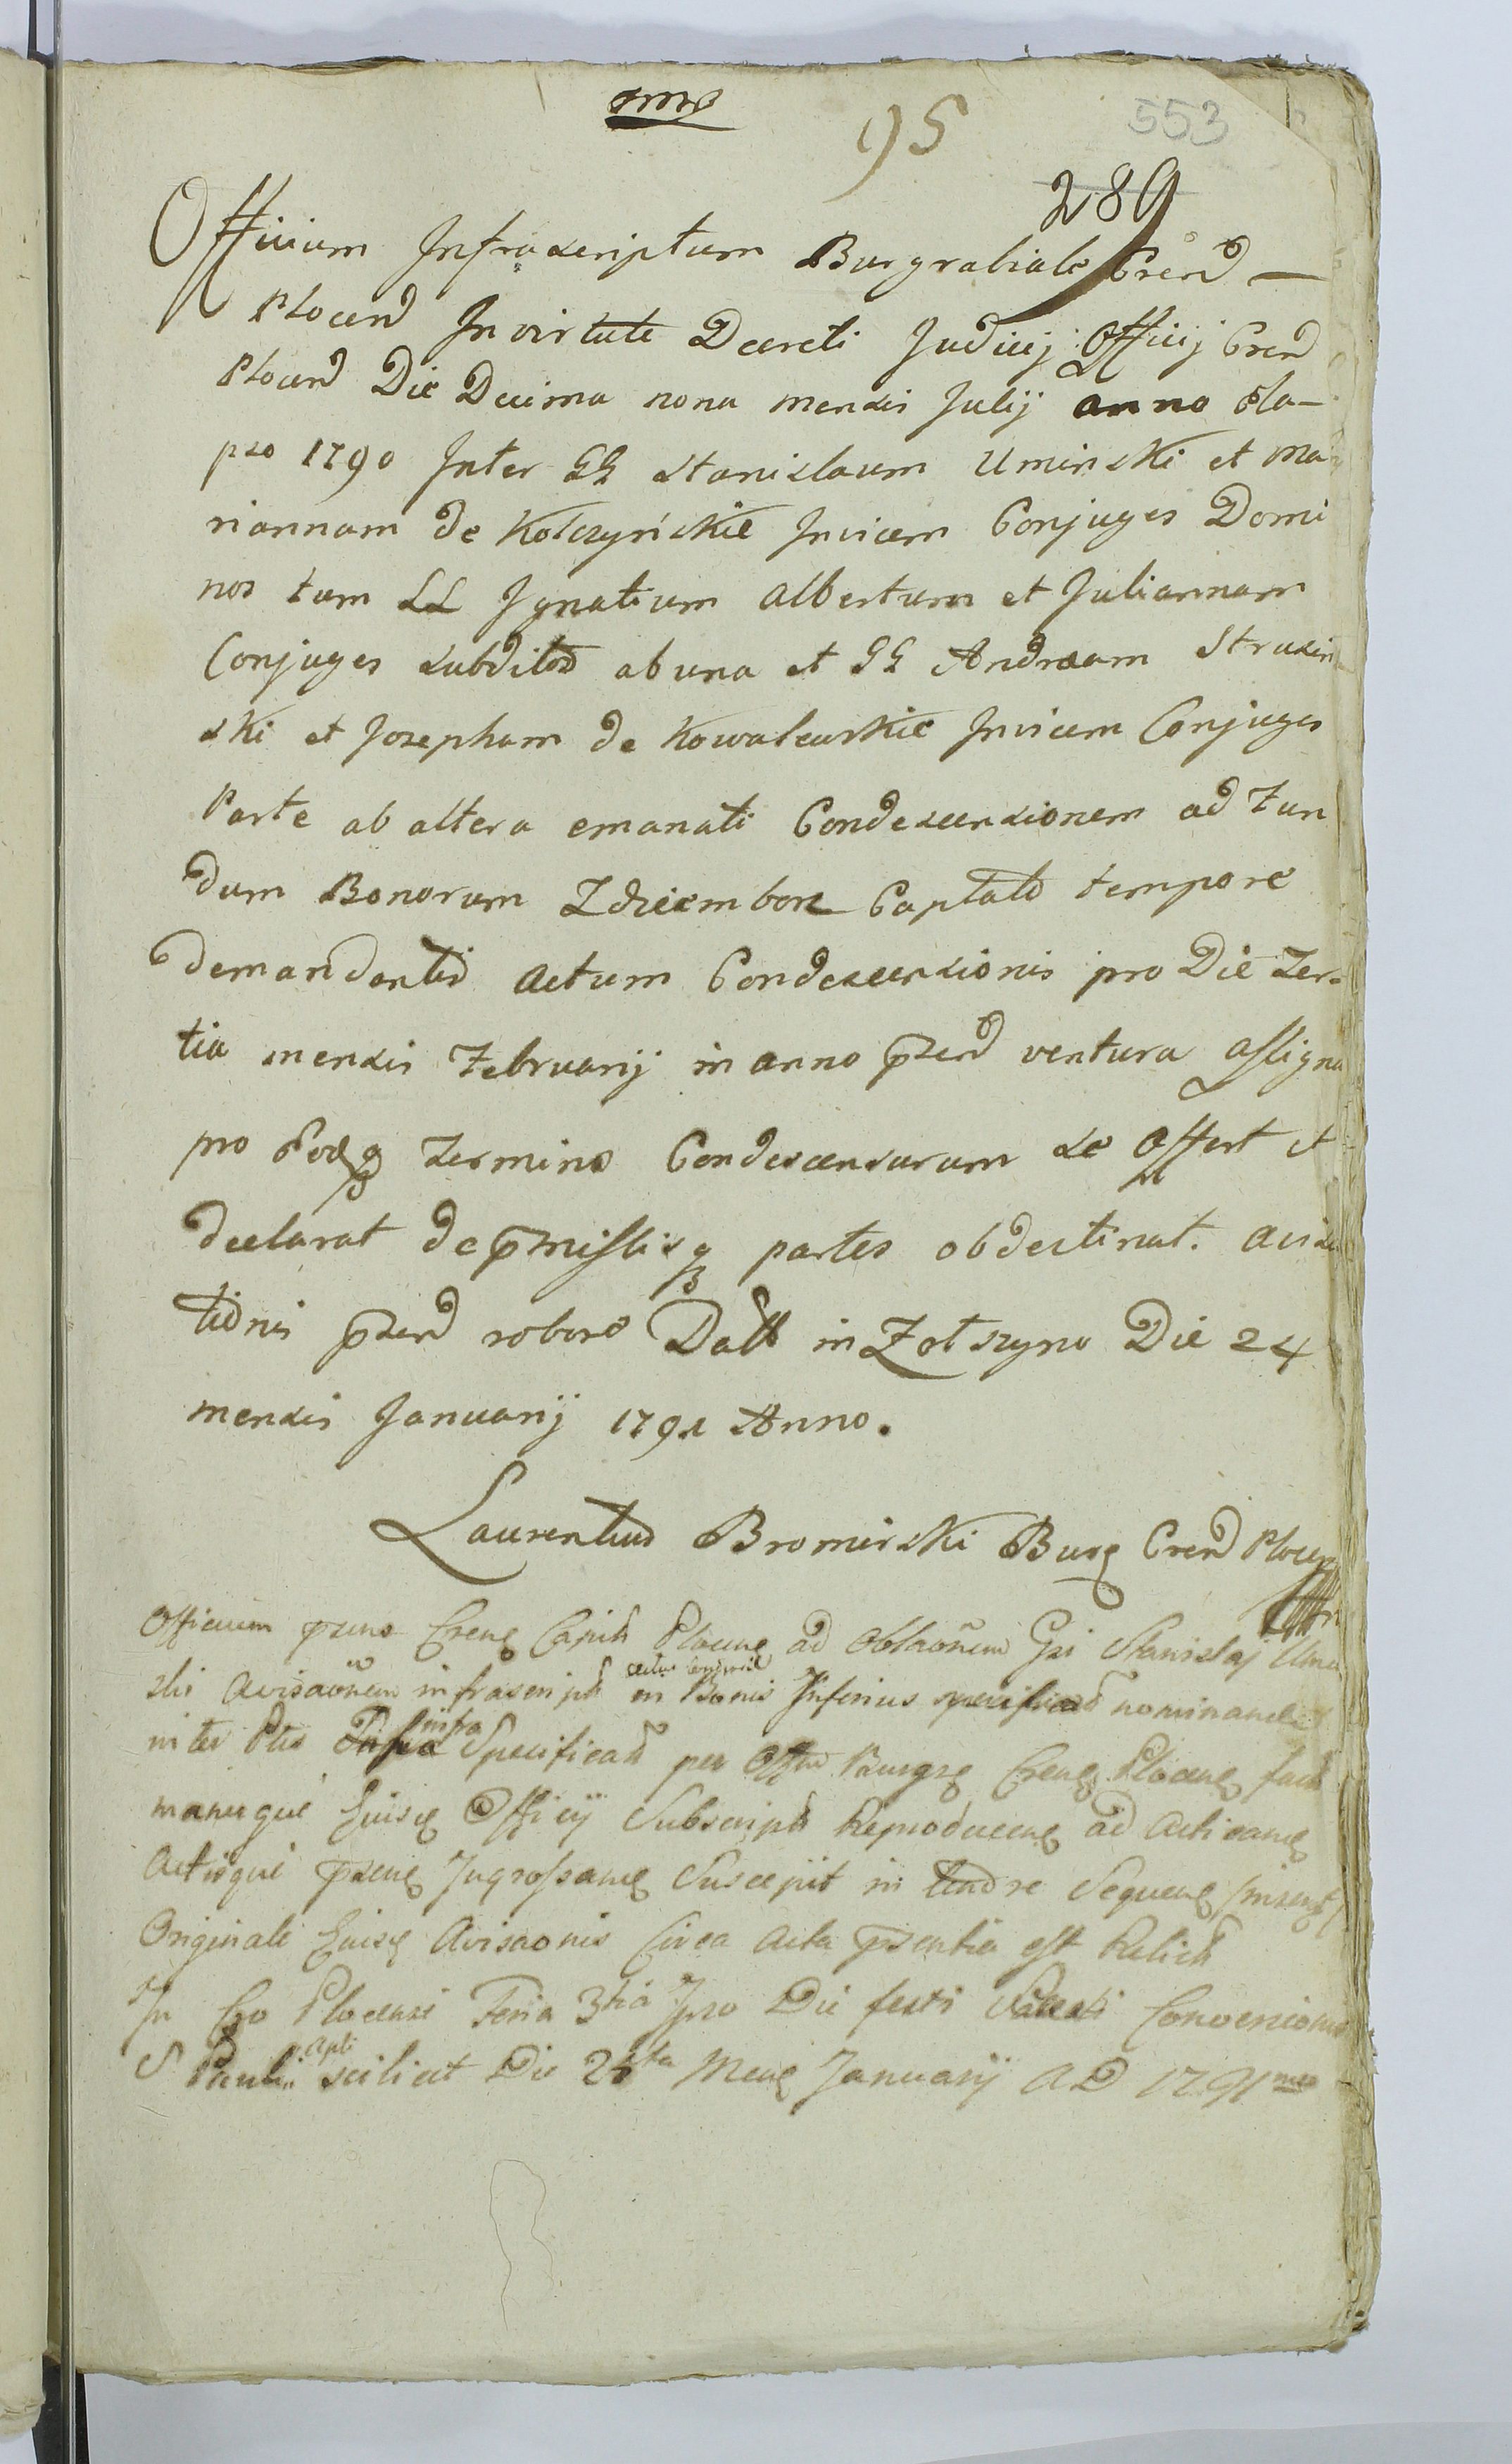 95
553
289
Officium Infrascriptum Burgrabiale Cren̄d —
Plocen̄d In virtute Decreti Judicij Officij Cren̄d
Plocen̄d Die Decima nona mensis Julij anno Ela-
pso 1790 Inter GG Stanislaum Uminski et Ma-
riannam de Kołczyńskie Invicem Conjuges Domi
nos tum LL Ignatium Albertum et Juliannam
Conjuges subditos ab una et GG Andream Strusin
ski et Josepham de Kowalewskie Invicem Conjuges
Parte ab altera emanati Condescensionem ad Fun
dum Bonorum Zdziemborz Captato tempore
demandantis Actum Condescensionis pro Die Ter-
tia mensis Februarij in anno p̄sen̄d ventura assigna
pro Eodq Termino Condescensurum se offert et
declarat de p̄missisq partes obdestinat. Avisa
tionis p̄sen̄d robore Datt in Zołszyno Die 24
mensis Januarij 1791 Anno.
Laurentius Bromirski Burg Cren̄d Plocen
Officium p̄sens Crens Capit Plocens ad Oblaõnem Gsi Stanislaj Umin
ski Avisaõnem infrascript in Bonis Inferius specificat nominand
inter Ptes infra Specificat per Offm Burgs Crens Plocens fact
manuque Ejusq Officij Subscript Reproducens ad Acticand
Actisque p̄sens Ingrossand Suscepit in tenore Sequens
Originale Ejusq Avisaonis Circa Acta p̄sentia est Relict
In Cro Plocensi Feria 3tia Ipso Die festi Conversionis
S Pauli Apli scilicet Die 25ta Mens Januarij AD 1791mo